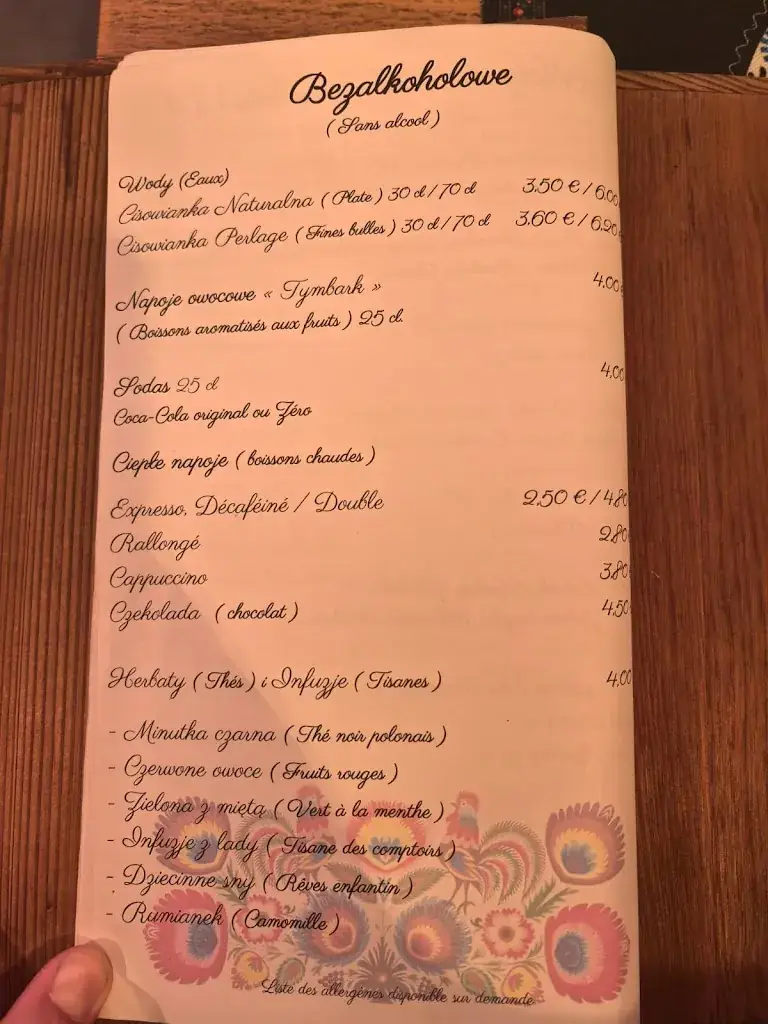 Bezalkoholowe
(Sans alcool)
Wody (Eaux)
Cisowianka Naturalna (Plate) 30 cl/70 cl 3.50 €/6.00
Cisowianka Perlage (Fines bulles) 30 cl/70 cl 3.60 €/6.20
Napoje owocowe « Tymbark » 4.00
(Boissons aromatisés aux fruits) 25 cl.
Sodas 25 cl 4,00
Coca-Cola original ou Zéro
Ciepłe napoje (boissons chaudes)
Expresso, Décaféiné / Double 2.50 €/4.80
Rallongé 2.80
Cappuccino 3.80
Czekolada (chocolat) 4.50
Herbaty (Thés) i Infuzje (Tisanes) 4,00
- Minutka czarna (Thé noir polonais)
- Czerwone owoce (Fruits rouges)
- Zielona z miętą (Vert à la menthe)
- Infuzje z lady (Tisane des comptoirs)
- Dziecinne sny (Rêves enfantin)
- Rumianek (Camomille)
Liste des allergènes disponible sur demande.